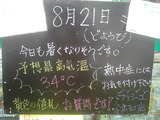 8月21日
(どようび)
今日も暑くなりそうです。
予想最高気温
34℃
熱中症には
お気を付け下さい
黄色の値札 お買得です!